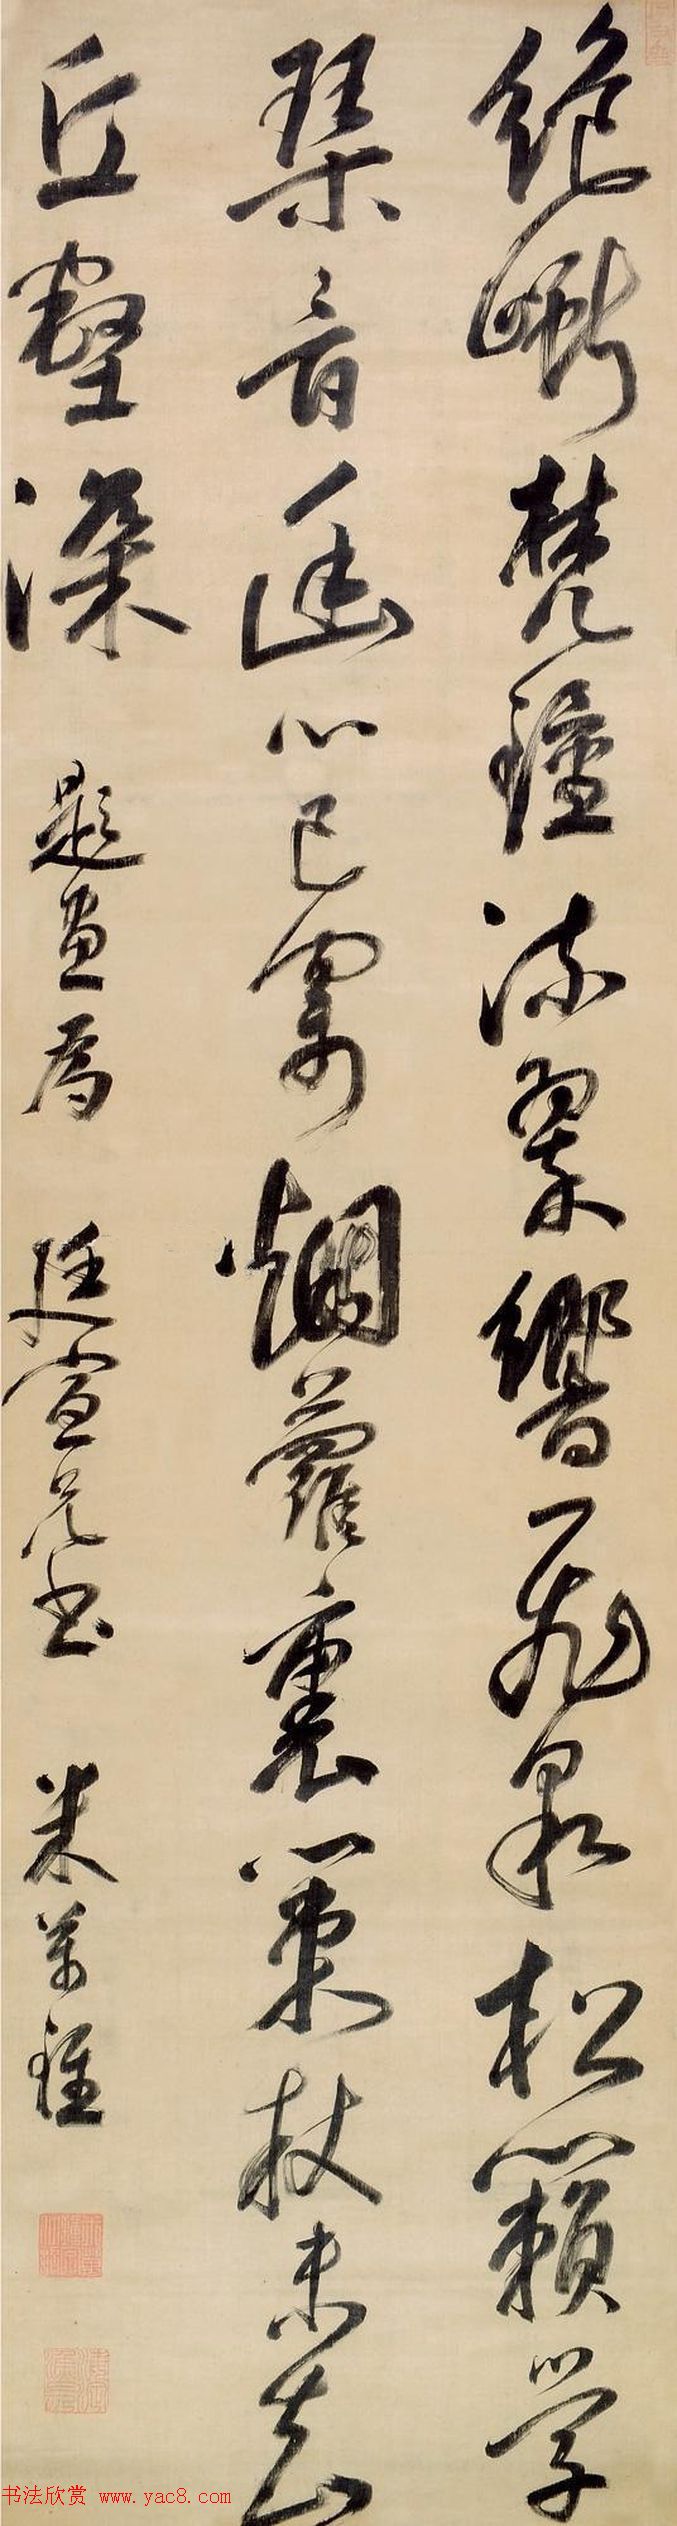 絕梵鐘流翠響飛泉松籟學
琴音幽心已寄烟蘿裏策杖未知
丘壑深
題畫為
廷宣兄書
米萬鍾
书法欣赏 www.yac8.com